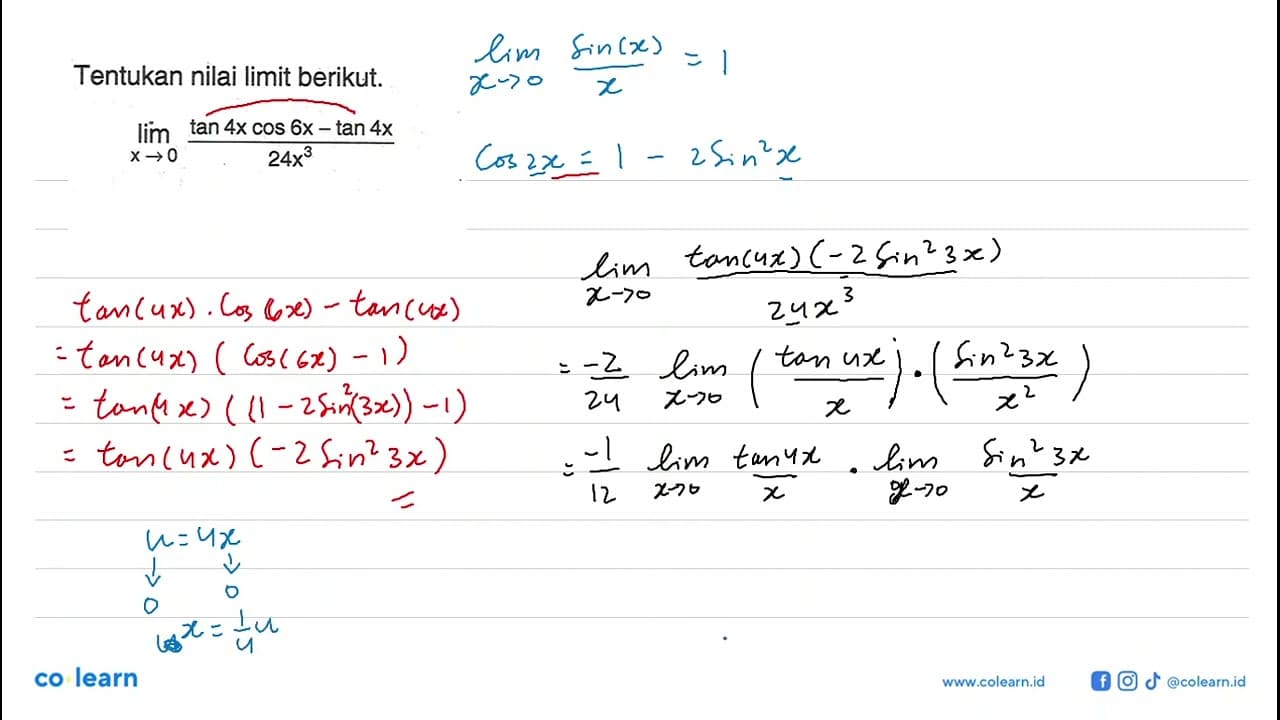 Tentukan nilai limit berikut.
lim x→0 (tan 4x cos 6x – tan 4x)/(24x³)
lim x→0 sin(x)/x = 1
Cos 2x = 1 - 2 Sin²x
tan(4x) . Cos(6x) - tan(4x)
= tan(4x) ( Cos(6x) - 1)
= tan(4x) ((1 - 2Sin²(3x)) - 1)
= tan(4x) (-2 Sin² 3x)
=
u = 4x
↓ ↓
0 0
x = 1/4 u
lim x→0 tan(4x) (-2 Sin² 3x)/24x³
= -2/24 lim x→0 (tan 4x/x) . (Sin² 3x/x²)
= -1/12 lim x→0 tan 4x/x . lim x→0 Sin² 3x/x
co learn
www.colearn.id
@colearn.id